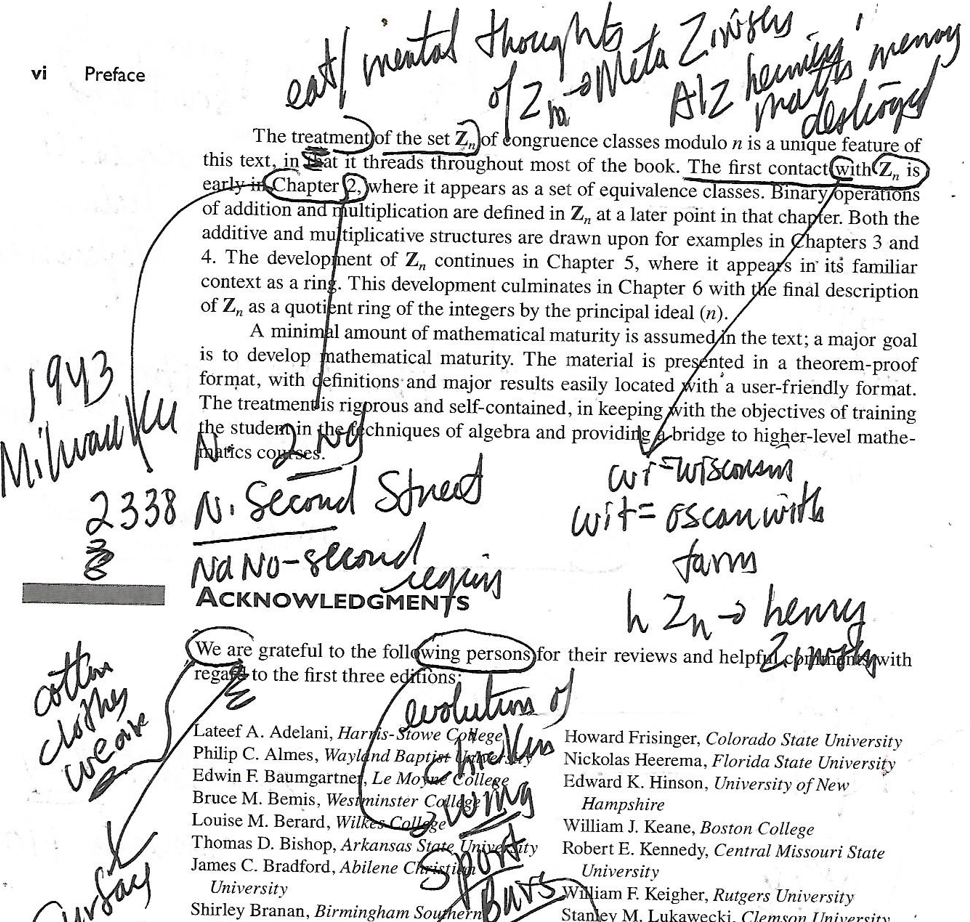 eat/mental thoughts
of Zn → Meta Z
A/Z
maths memory
destroyed
vi Preface
The treatment of the set Zn of congruence classes modulo n is a unique feature of
this text, in that it threads throughout most of the book. The first contact with Zn is
early in Chapter 2, where it appears as a set of equivalence classes. Binary operations
of addition and multiplication are defined in Zn at a later point in that chapter. Both the
additive and multiplicative structures are drawn upon for examples in Chapters 3 and
4. The development of Zn continues in Chapter 5, where it appears in its familiar
context as a ring. This development culminates in Chapter 6 with the final description
of Zn as a quotient ring of the integers by the principal ideal (n).
A minimal amount of mathematical maturity is assumed in the text; a major goal
is to develop mathematical maturity. The material is presented in a theorem-proof
format, with definitions and major results easily located with a user-friendly format.
The treatment is rigorous and self-contained, in keeping with the objectives of training
the student in the techniques of algebra and providing a bridge to higher-level mathe-
matics courses.
1943
Milwaukee
N. 2Nd
2338 N. Second Street
NaNo-second
wi=wisconsin
wit= oscan with
farm
h Zn → henry
ACKNOWLEDGMENTS
We are grateful to the following persons for their reviews and helpful comments with
regard to the first three editions:
cotton
clothes
weave
evolution of
wing
Sport
Lateef A. Adelani, Harris-Stowe College
Philip C. Almes, Wayland Baptist University
Edwin F. Baumgartner, Le Moyne College
Bruce M. Bemis, Westminster College
Louise M. Berard, Wilkes College
Thomas D. Bishop, Arkansas State University
James C. Bradford, Abilene Christian
University
Shirley Branan, Birmingham Southern
Howard Frisinger, Colorado State University
Nickolas Heerema, Florida State University
Edward K. Hinson, University of New
Hampshire
William J. Keane, Boston College
Robert E. Kennedy, Central Missouri State
University
William F. Keigher, Rutgers University
Stanley M. Lukawecki, Clemson University